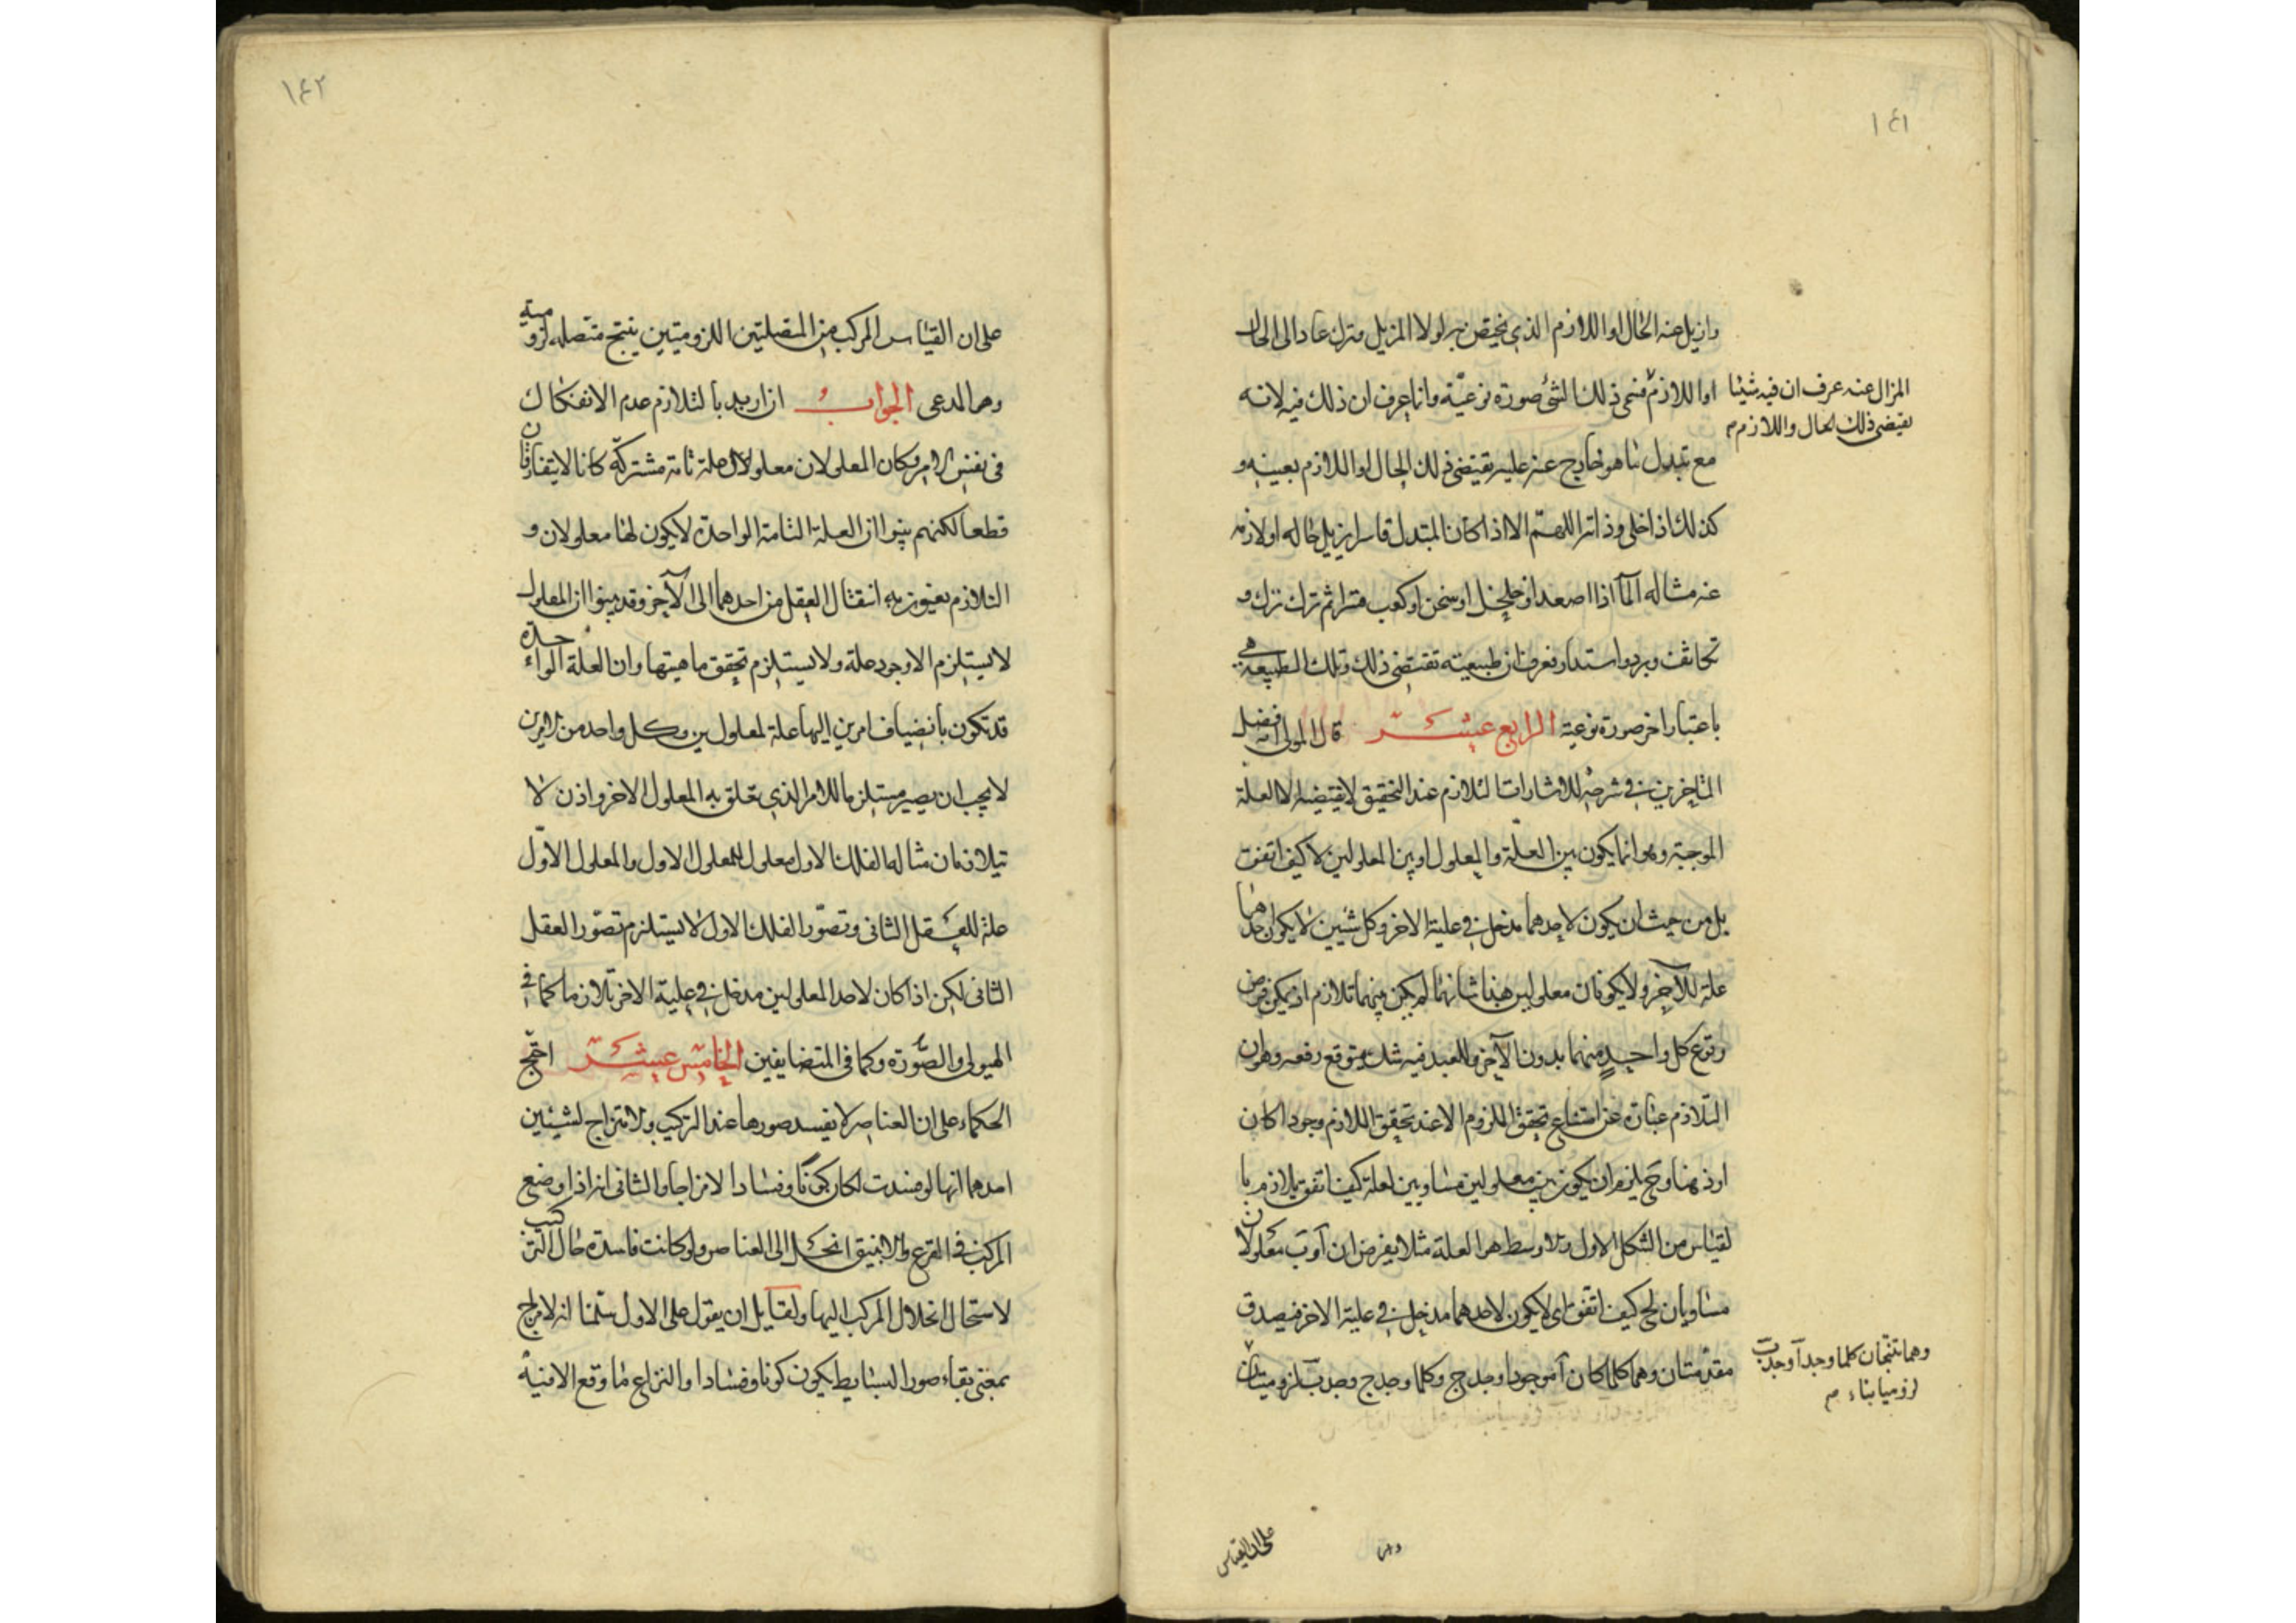 ١٤١
وازيل عنه الحال او اللازم الذي يختص به لولا المزيل وترك عاد الى الحال
او اللازم فنسمى ذلك الشئ صورة نوعيّة وانما عرف ان ذلك فيه لانه
المزال عنه عرف ان فيه شيئا
يقتضى ذلك الحال واللازم م
مع تبدل ما هو خارج عنه عليه يقتضى ذلك الحال او اللازم بعينه و
كذلك اذا خلى وذاته اللهم الا اذا كان المتبدل قاسرا يزيل حاله او لازمه
عنه مثاله المآ اذا اصعد او خلخل او سخن او كعب قسرا ثم ترك نزل و
تكاثف وبرد واستدار فعرف ان طبيعته تقتضى ذلك وتلك الطبيعة هى
باعتبار اخر صورة نوعية الرابع عشر قال المولى افضل
المتاخرين فى شرحه للاشارات التلازم عند التحقيق لا يقتضيه الا العلة
الموجبة وهو انما يكون بين العلّة والمعلول او بين المعلولين لا كيف اتفقت
بل من حيث ان يكون لاحدهما مدخل فى علية الاخر وكل شيئين لا يكون احدهما
علة للآخر ولا يكونان معلولين هذا شانهما لم يكن بينهما تلازم اذ يمكن فرض
وقوع كل واحدٍ منهما بدون الآخر وللعبد فيه شك يتوقع رفعه وهو ان
التلازم عبارة عن امتناع تحقق الملزوم الا عند تحقق اللازم وجودا كان
او ذهنا وح يلزم ان يكون بين معلولين متساويين لعلة كيف اتفق تلازم با
لقياس من الشكل الاول والاوسط هو العلة مثلا يفرض ان آ و ب معلولان
متساويان لج كيف اتفق اى لا يكون لاحدهما مدخل فى علية الاخر فيصدق
مقدمتان وهما كلما كان آ موجودا وجد ج وكلما وجد ج وجد ب لزوميتان
وهما تنتجان كلما وجد آ وجد ب
لزوميا بناء م
على ان القياس
١٤٢
على ان القياس المركب من المتصلتين اللزوميتين ينتج متصلة لزومية
وهو المدعى الجواب ان اريد بالتلازم عدم الانفكاك
فى نفس الامر وكان المعلولان معلولان لعلة تامة مشتركة كانا لا يتفارقان
قطعا لكنهم بينوا ان العلة التامة الواحدة لا يكون لها معلولان و
التلازم يعنون به انتقال العقل من احدهما الى الآخر وقد بينوا ان المعلول
لا يستلزم الا وجود علة ولا يستلزم تحقق ماهيتها وان العلة الواحدة
قد تكون بانضياف امرين اليها علة لمعلولين وكل واحد من الامرين
لا يجب ان يصير مستلزما للامر الذى تعلق به المعلول الاخر واذن لا
يتلازمان مثاله الفلك الاول معلول للمعلول الاول والمعلول الاوّل
علة للعقل الثانى وتصوّر الفلك الاول لا يستلزم تصوّر العقل
الثانى لكن اذا كان لاحد المعلولين مدخل فى علية الاخر تلازما كما فى
الهيولى والصّورة وكما فى المتضايفين الخامس عشر احتج
الحكماء على ان العناصر لا يفسد صورها عند التركيب والامتزاج لشيئين
احدهما انها لو فسدت لكان كونا وفسادا لا مزاجا والثانى انه اذا وضع
المركب فى القرع والانبيق انحل الى العناصر ولو كانت فاسدة حال التركيب
لاستحال انحلال المركب اليها ولقايل ان يقول على الاول سلمنا انه لا مزاج
بمعنى بقاء صور البسايط يكون كونا وفسادا والنزاع ما وقع الا فيه